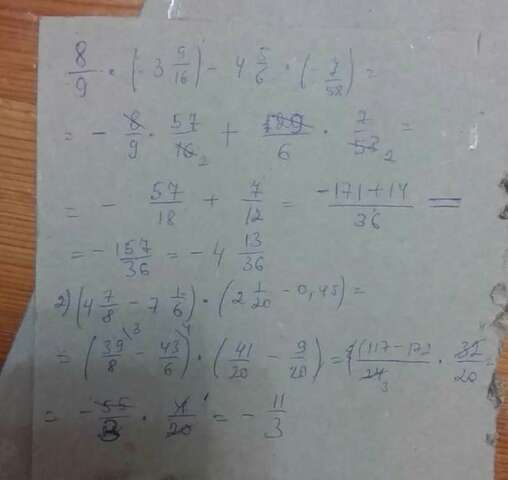 8/9 · (-3 9/16) - 4 5/6 · (-7/58) =
= - 8/9 · 57/16 2 + /6 · 7/58 2 =
= - 57/18 + 7/12 = -171+14/36 =
= - 157/36 = - 4 13/36
2) (4 7/8 - 7 1/6) · (2 1/20 - 0,45) =
= (39/8 \3 - 43/6 \4) · (41/20 - 9/20) = (117-172/24 3 · 32/20 4 =
= - 55/3 · 4/20 1 = - 11/3